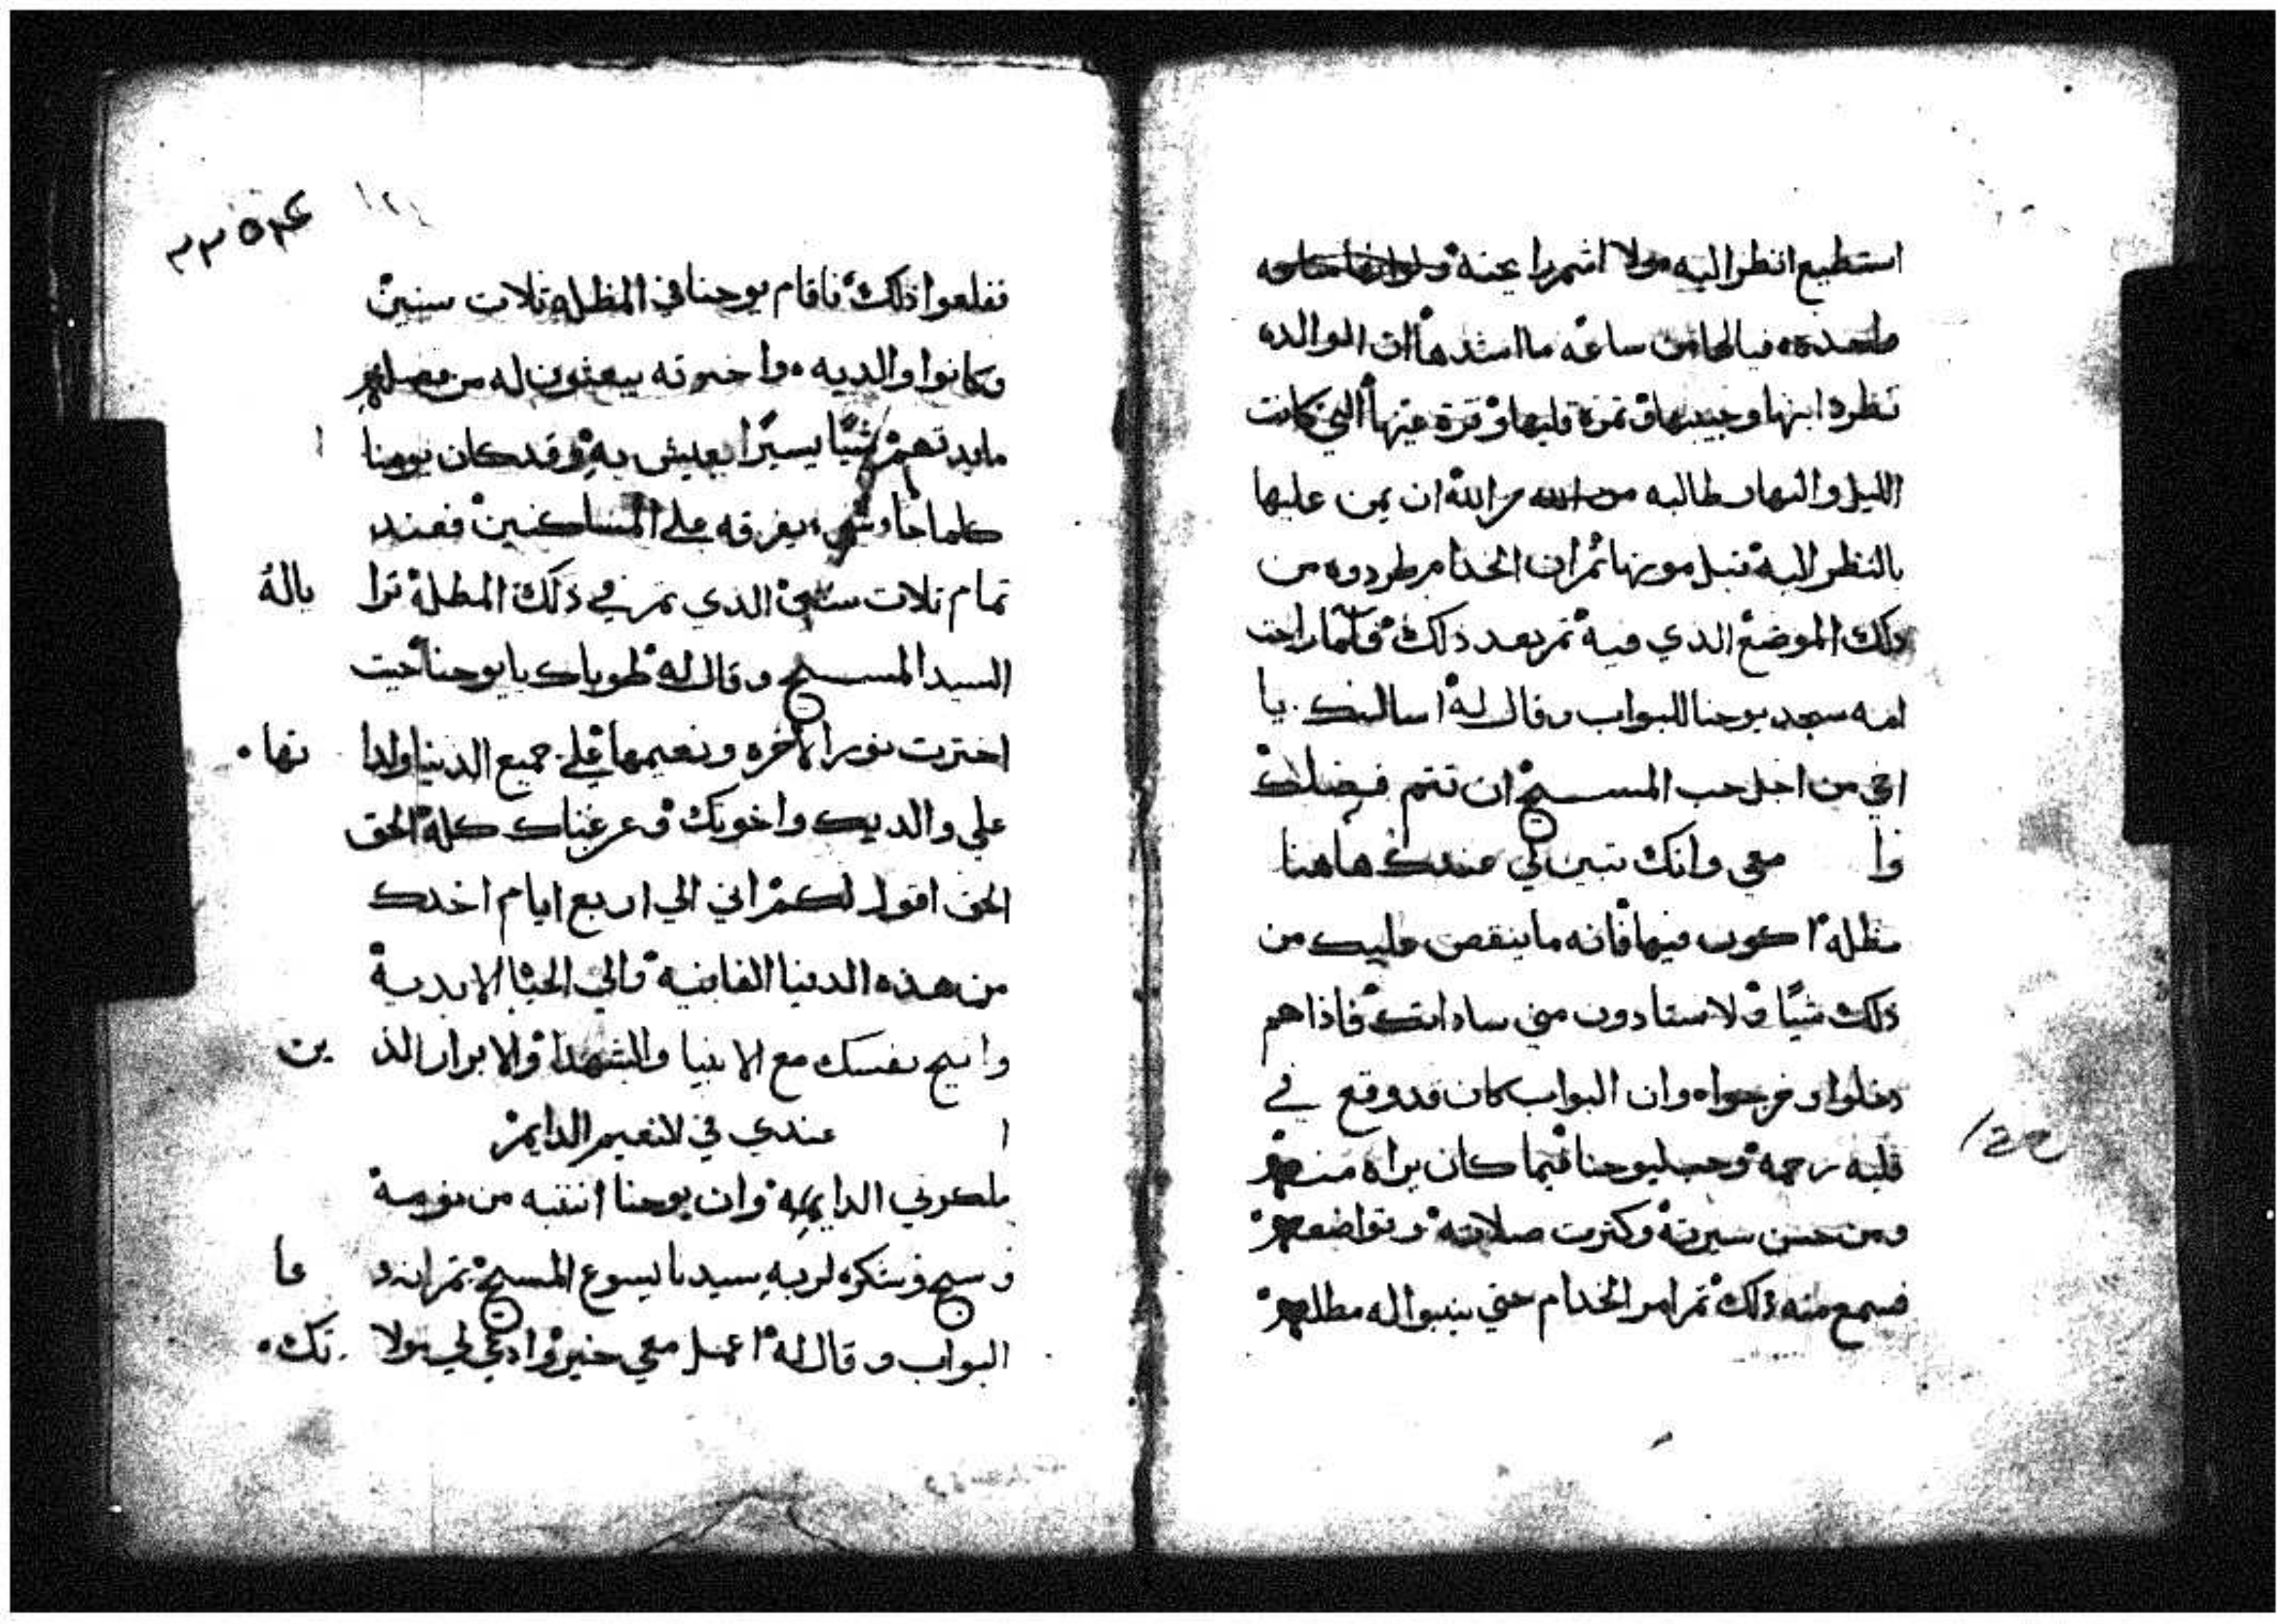 استطيع انظر اليه ولا اشم رايحته
واحده فيالها من ساعه ما اشدها ان الوالده
تطرد ابنها وحبيبها وتمرة قلبها وقرة عينها التي كانت
الليل والنهار طالبه من الله ان يمن عليها
بالنظر اليه قبل موتها ثم ان الخدام طردوه من
ذلك الموضع الذي فيه تم بعد ذلك فلما راحت
امه سجد يوحنا للبواب وقال له اسالك يا
اخي من اجل حب المسيح ان تتم فضلك
وا معي وانك تبين لي عندك هاهنا
مظله اكون فيها فانه ما ينقص عليك من
ذلك شيًا ولا ستادون مني ساداتك فاذا هم
دخلوا وخرجوا وان البواب كان قد وقع في
قلبه رحمه وحب ليوحنا فيما كان يراه منهم
ومن حسن سيرته وكترت صلاته وتواضعهم
فسمع منه ذلك تم امر الخدام حتي يبنوا له مطلهم
١٢٤
ففلعوا ذلك فاقام يوحنا في المظله تلات سنين
وكانوا والديه واخوته يبعثون له من فضلهم
مايدتهم شيًا يسيرًا يعيش به وقد كان يوحنا
كلما جاوه شي يفرقه علي المساكنين فعند
تمام تلات سنين الذي تم في ذلك المطلة ترا باله
السيد المسيح وقال له طوباك يا يوحنا حيت
اخترت نور الاخره ونعيمها علي جميع الدنيا ولدا تها
علي والديك واخوتك وعرغباك كلة الحق
الحق اقول لكم اني الي اربع ايام اخدك
من هذه الدنيا الفانيه والي الحيا الابدية
وانيح نفسك مع الانبيا والشهدا والابرار الذ ين
ا عندي في لانعيم الدايم
ملكوتي الدايمه وان يوحنا انتبه من نومة
وسبح وشكره لربه سيدنا يسوع المسيح تم انه د عا
البواب وقال له اعمل معي خير وادعي لي مولا تك